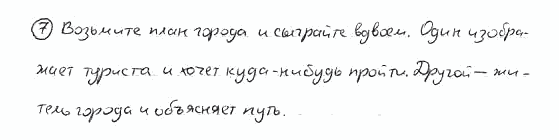 7 Возьмите план города и сыграйте вдвоем. Один изобра-
жает туриста и хочет куда-нибудь пройти. Другой – жи-
тель города и объясняет путь.